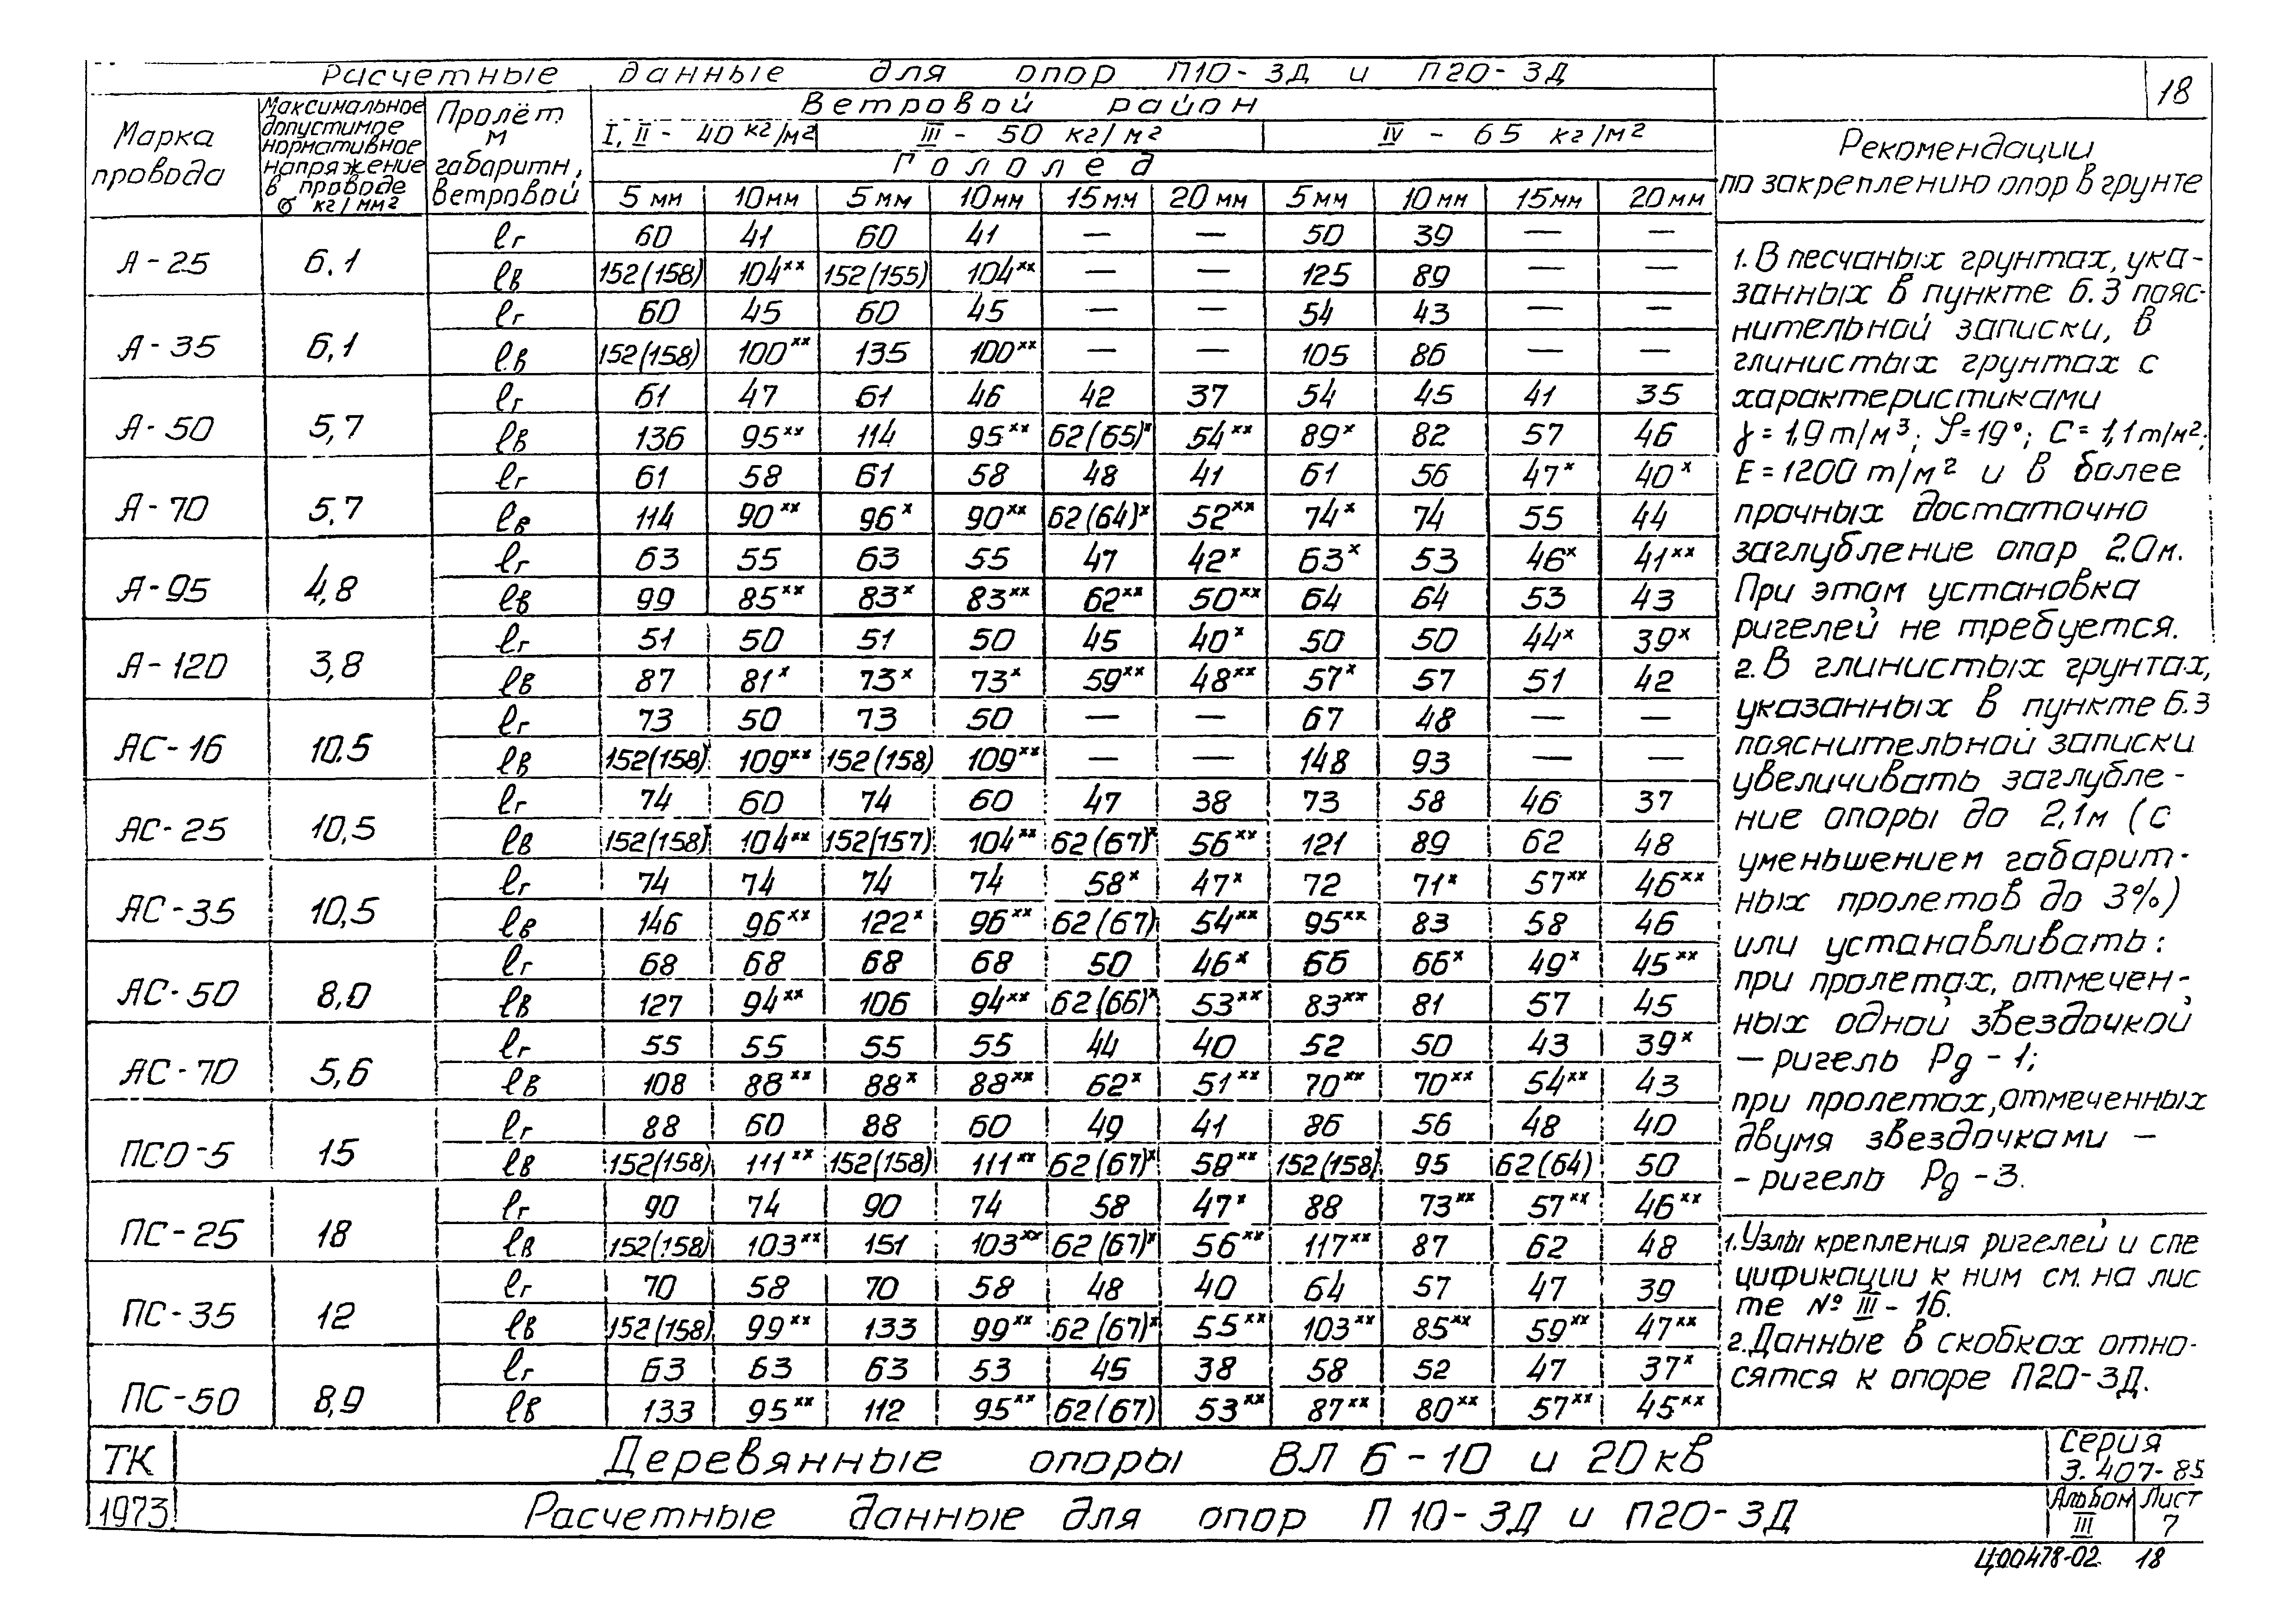 Расчетные данные для опор П10-3Д и П20-3Д
18
Марка провода
Максимальное допустимое нормативное напряжение в проводе σ кг/мм²
Пролёт м габаритн, ветровой
Ветровой район
I, II - 40 кг/м² III - 50 кг/м² IV - 65 кг/м²
Гололед
5 мм 10мм 5 мм 10мм 15мм 20 мм 5 мм 10 мм 15мм 20 мм
А-25 6.1 ℓг 60 41 60 41 — — 50 39 — —
ℓв 152(158) 104ˣˣ 152(155) 104ˣˣ — — 125 89 — —
А-35 6,1 ℓг 60 45 60 45 — — 54 43 — —
ℓв 152(158) 100ˣˣ 135 100ˣˣ — — 105 86 — —
А-50 5,7 ℓг 61 47 61 46 42 37 54 45 41 35
ℓв 136 95ˣˣ 114 95ˣˣ 62(65)ˣ 54ˣˣ 89ˣ 82 57 46
А-70 5,7 ℓг 61 58 61 58 48 41 61 56 47ˣ 40ˣ
ℓв 114 90ˣˣ 96ˣ 90ˣˣ 62(64)ˣ 52ˣˣ 74ˣ 74 55 44
А-95 4,8 ℓг 63 55 63 55 47 42ˣ 63ˣ 53 46ˣ 41ˣˣ
ℓв 99 85ˣˣ 83ˣ 83ˣˣ 62ˣˣ 50ˣˣ 64 64 53 43
А-120 3,8 ℓг 51 50 51 50 45 40ˣ 50 50 44ˣ 39ˣ
ℓв 87 81ˣ 73ˣ 73ˣ 59ˣˣ 48ˣˣ 57ˣ 57 51 42
АС-16 10.5 ℓг 73 50 73 50 — — 67 48 — —
ℓв 152(158) 109ˣˣ 152(158) 109ˣˣ — — 148 93 — —
АС-25 10,5 ℓг 74 60 74 60 47 38 73 58 46 37
ℓв 152(158) 104ˣˣ 152(157) 104ˣˣ 62(67)ˣ 56ˣˣ 121 89 62 48
АС-35 10,5 ℓг 74 74 74 74 58ˣ 47ˣ 72 71ˣ 57ˣˣ 46ˣˣ
ℓв 146 96ˣˣ 122ˣ 96ˣˣ 62(67) 54ˣˣ 95ˣˣ 83 58 46
АС-50 8,0 ℓг 68 68 68 68 50 46ˣ 66 66ˣ 49ˣ 45ˣˣ
ℓв 127 94ˣˣ 106 94ˣˣ 62(66)ˣ 53ˣˣ 83ˣˣ 81 57 45
АС-70 5,6 ℓг 55 55 55 55 44 40 52 50 43 39ˣ
ℓв 108 88ˣˣ 88ˣ 88ˣˣ 62ˣ 51ˣˣ 70ˣˣ 70ˣˣ 54ˣˣ 43
ПСО-5 15 ℓг 88 60 88 60 49 41 86 56 48 40
ℓв 152(158) 111ˣˣ 152(158) 111ˣˣ 62(67)ˣ 58ˣˣ 152(158) 95 62(64) 50
ПС-25 18 ℓг 90 74 90 74 58 47ˣ 88 73ˣˣ 57ˣˣ 46ˣˣ
ℓв 152(158) 103ˣˣ 151 103ˣˣ 62(67)ˣ 56ˣˣ 117ˣˣ 87 62 48
ПС-35 12 ℓг 70 58 70 58 48 40 64 57 47 39
ℓв 152(158) 99ˣˣ 133 99ˣˣ 62(67)ˣ 55ˣˣ 103ˣˣ 85ˣˣ 59ˣˣ 47ˣˣ
ПС-50 8,9 ℓг 63 63 63 53 45 38 58 52 47 37ˣ
ℓв 133 95ˣˣ 112 95ˣˣ 62(67) 53ˣˣ 87ˣˣ 80ˣˣ 57ˣˣ 45ˣˣ
Рекомендации
по закреплению опор в грунте
1. В песчаных грунтах, ука-
занных в пункте 6.3 пояс-
нительной записки, в
глинистых грунтах с
характеристиками
γ = 1,9 т/м³; φ=19°; С= 1,1т/м²;
Е=1200 т/м² и в более
прочных достаточно
заглубление опор 2.0м.
При этом установка
ригелей не требуется.
2. В глинистых грунтах,
указанных в пункте 6.3
пояснительной записки
увеличивать заглубле-
ние опоры до 2,1м (с
уменьшением габарит-
ных пролетов до 3%)
или устанавливать:
при пролетах, отмечен-
ных одной звездочкой
— ригель Рд - 1;
при пролетах, отмеченных
двумя звездочками —
- ригель Рд - 3.
1. Узлы крепления ригелей и спе
цификации к ним см. на лис
те № III - 16.
2. Данные в скобках отно-
сятся к опоре П20-3Д.
ТК Деревянные опоры ВЛ 6-10 и 20кв
Серия
3.407-85
1973 Расчетные данные для опор П 10-3Д и П20-3Д
Альбом Лист
III 7
Ц00478-02 18